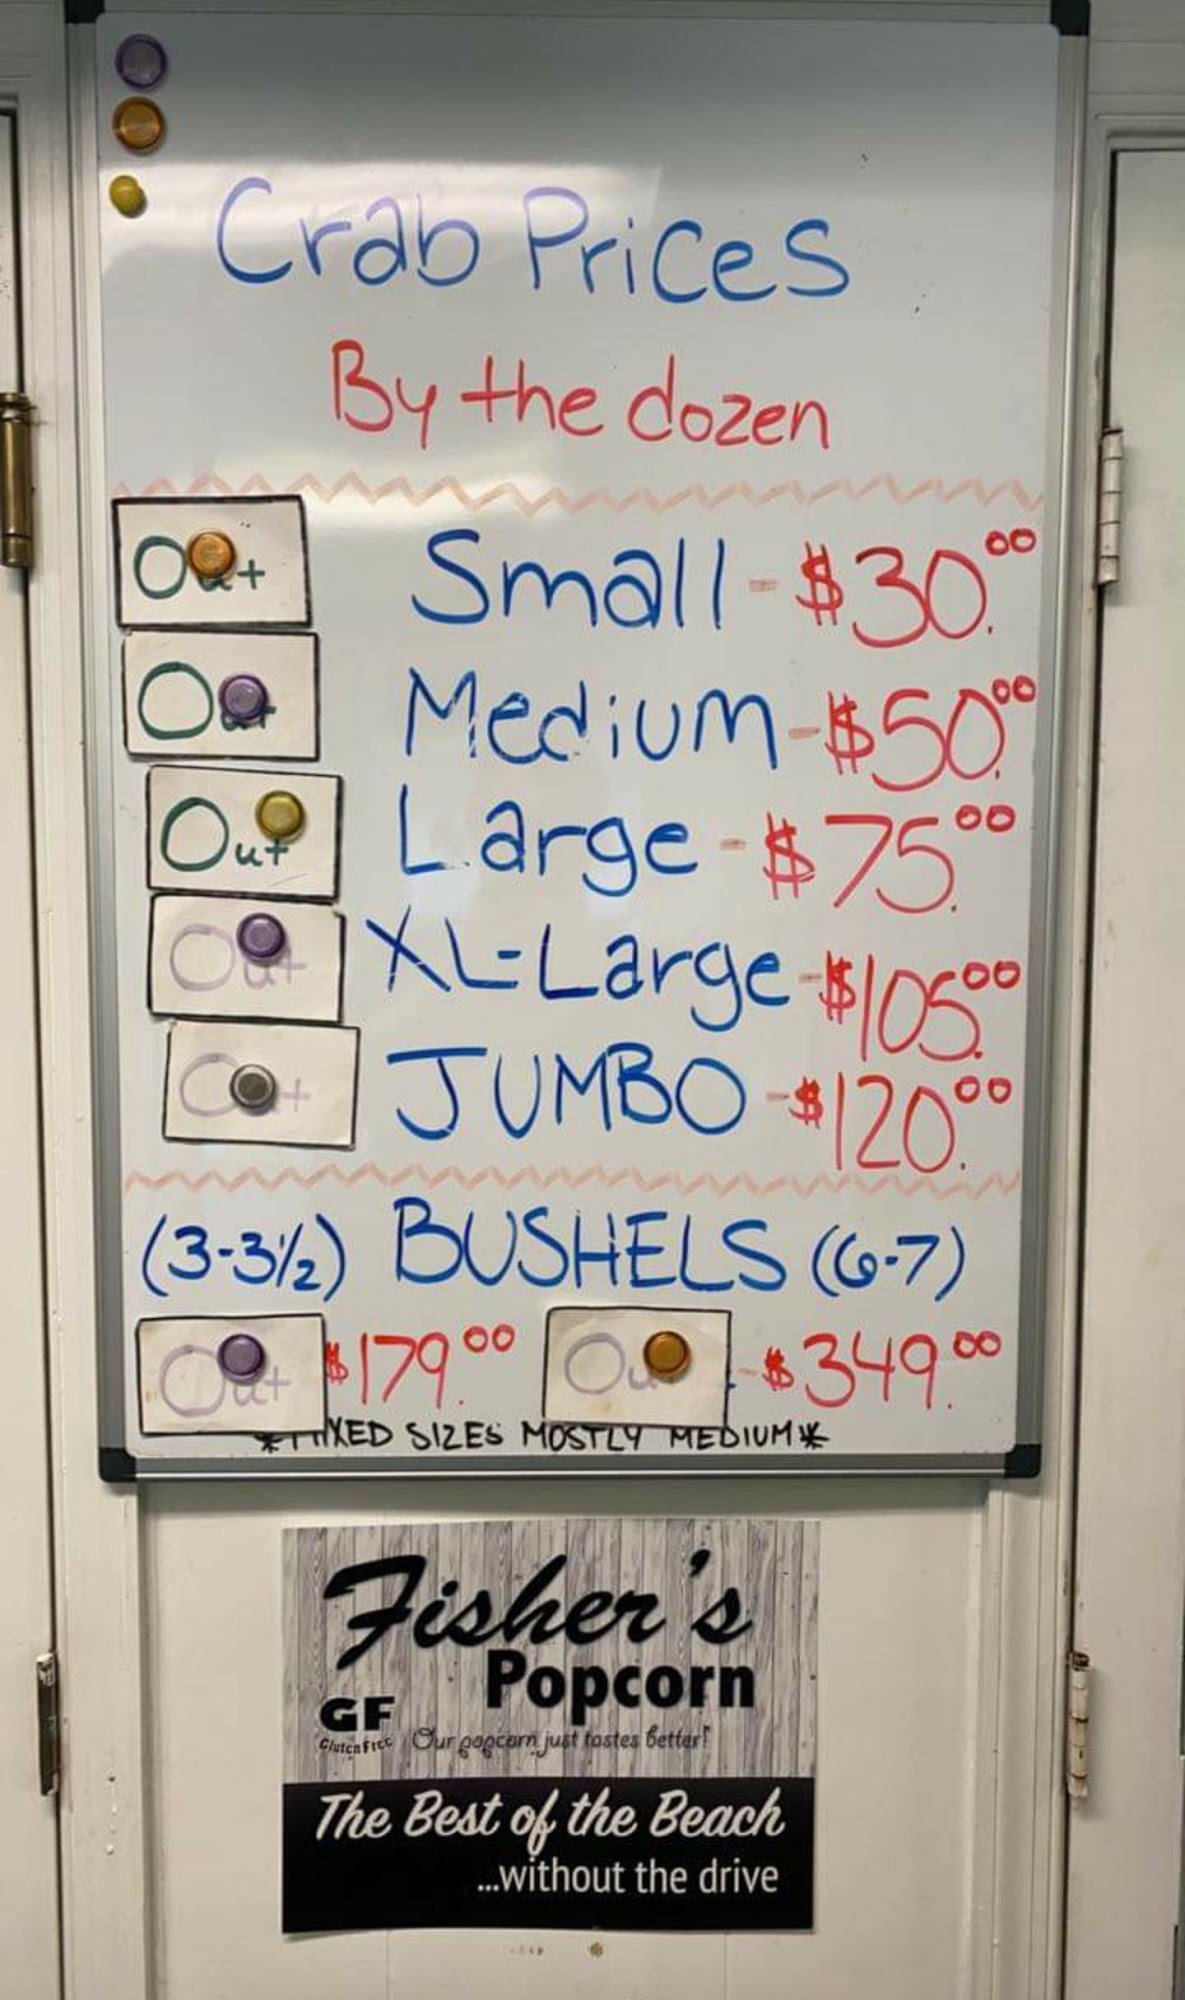 Crab Prices
By the dozen
Out Small - $30.00
Out Medium - $50.00
Out Large - $75.00
Out XL-Large - $105.00
Out JUMBO - $120.00
(3-3½) BUSHELS (6-7)
Out $179.00 Out - $349.00
*MIXED SIZES MOSTLY MEDIUM*
Fisher's
Popcorn
GF
Gluten Free
Our popcorn just tastes better!
The Best of the Beach
...without the drive